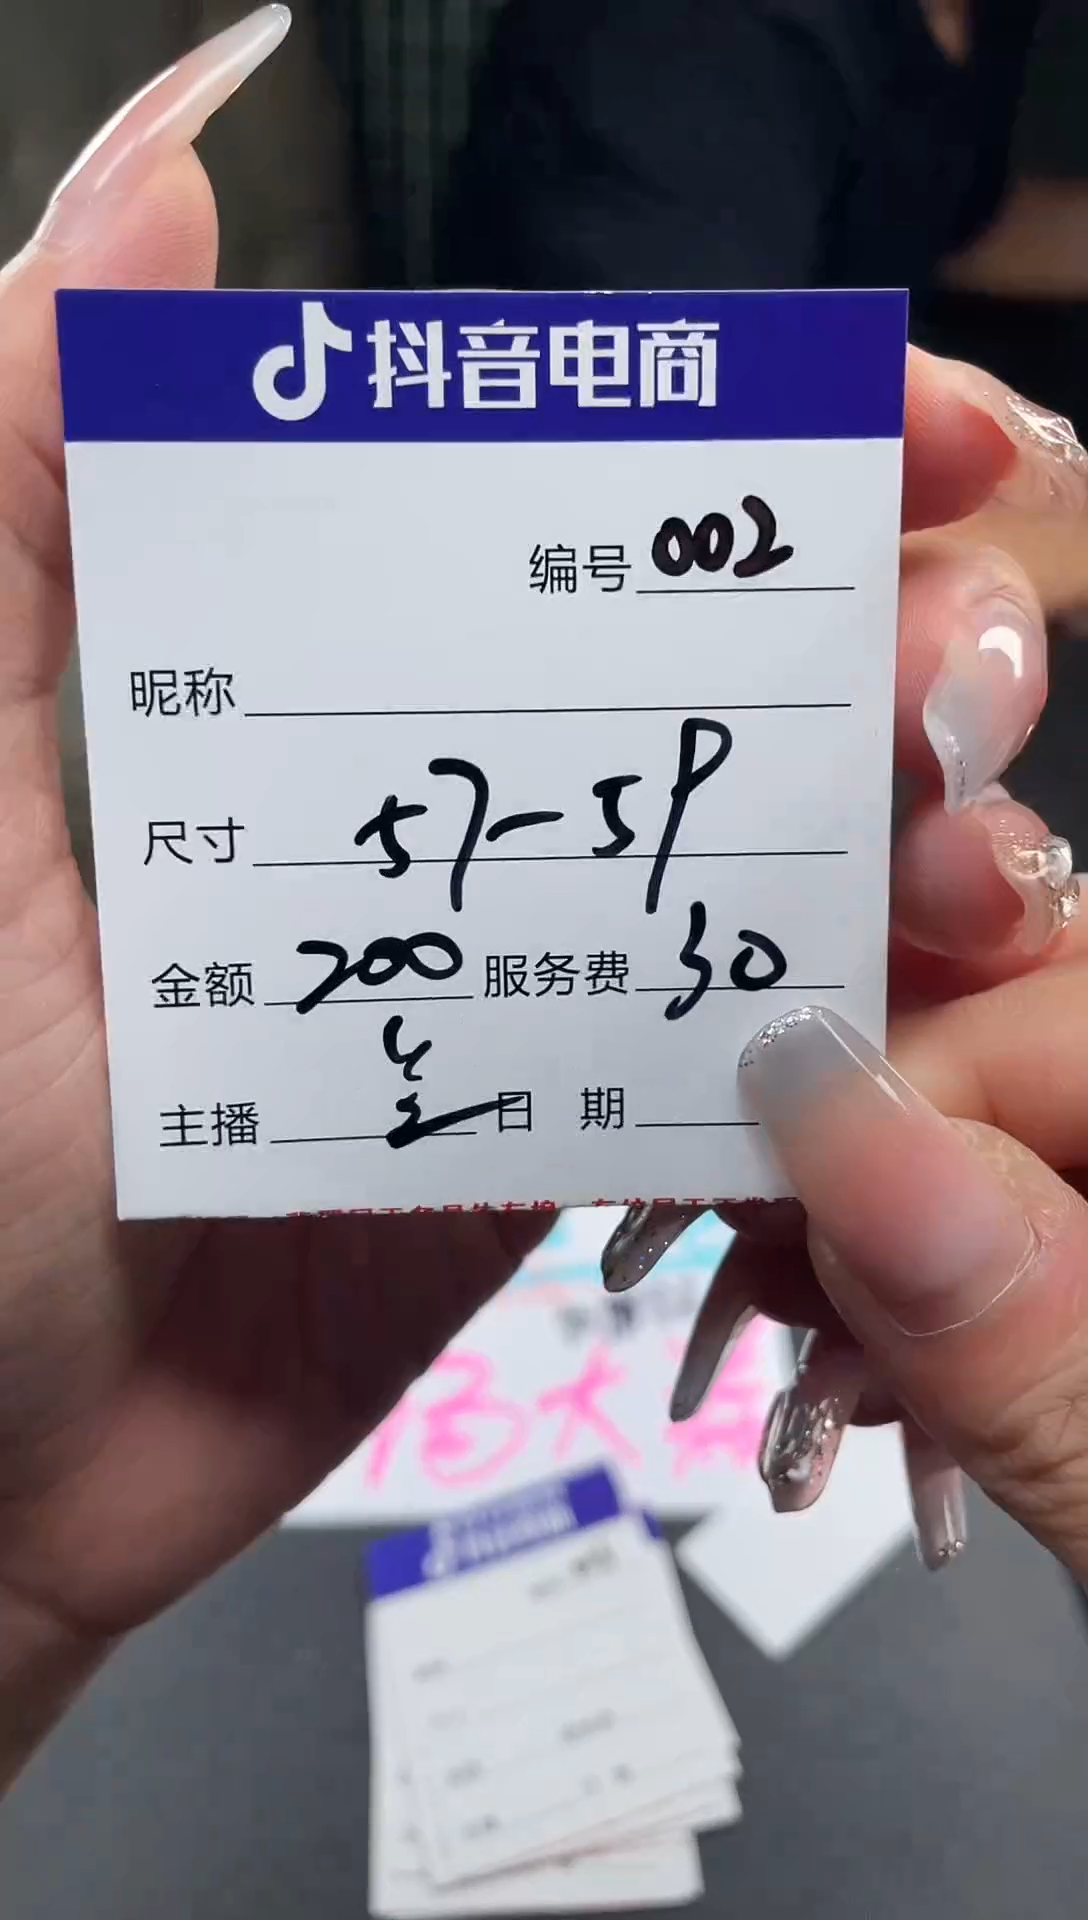 抖音电商
编号 002
昵称
尺寸 57-59
金额 200 服务费 30
主播 日 期
大